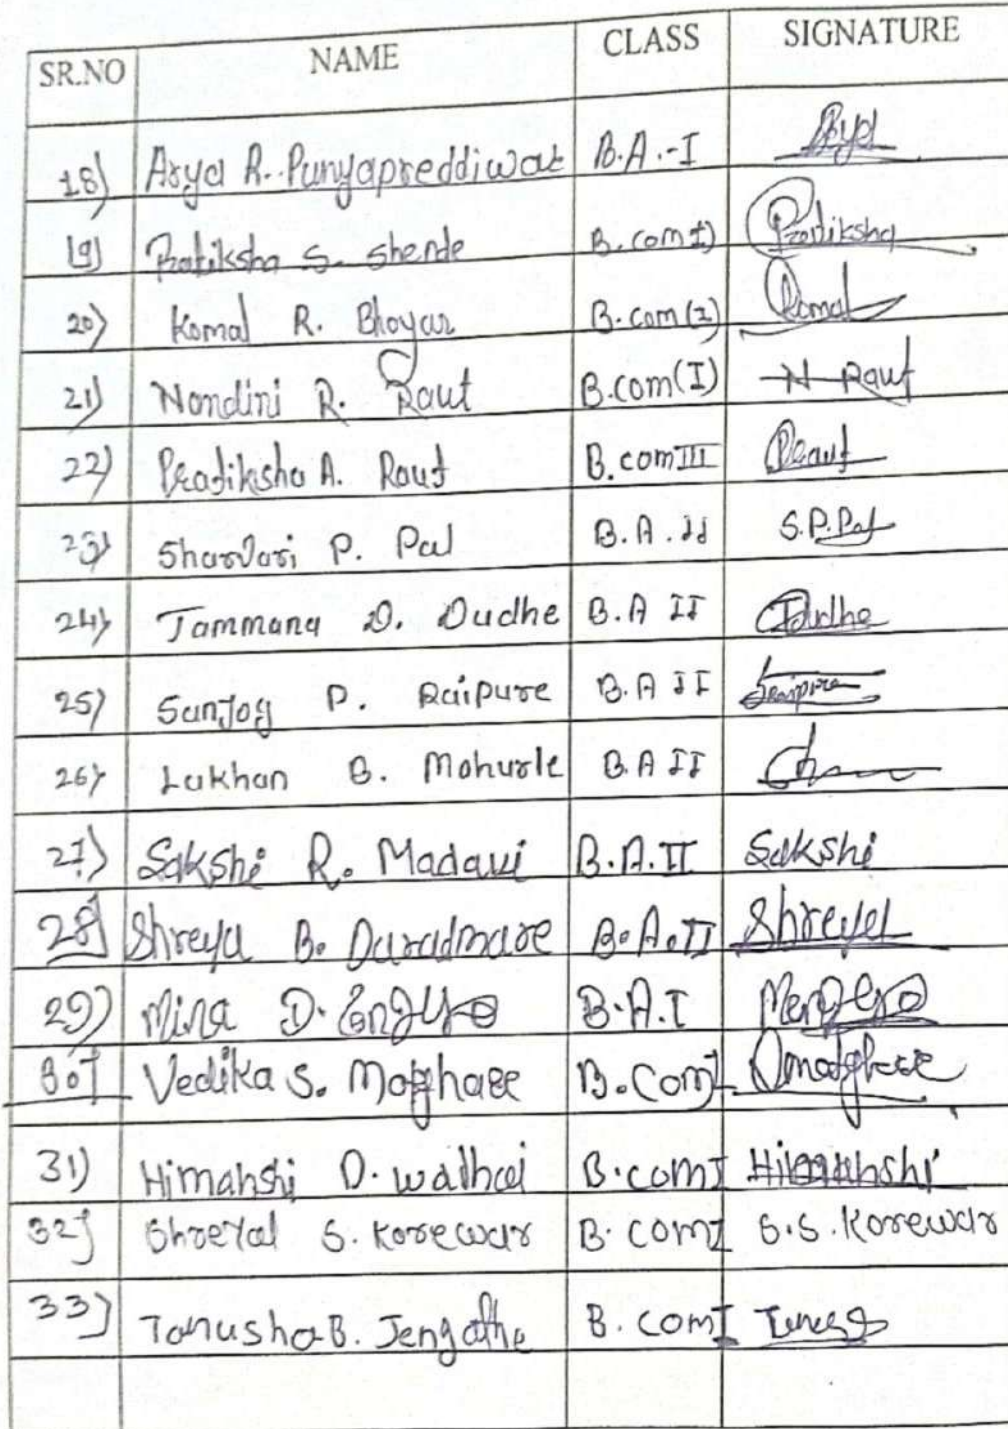 SR.NO NAME CLASS SIGNATURE
18) Arya R. Punyapreddiwar B.A.-I Arya
19) Pratiksha S. Shende B.com I) Pratiksha
20) Komal R. Bhoyar B.com (I) Komal
21) Nandini R. Raut B.com(I) N Raut
22) Pratiksha A. Raut B.com III PRaut
23) Sharvari P. Pal B.A.II S.P.Pal
24) Tammana D. Dudhe B.A II TDudhe
25) Sanjog P. Raipure B.A II Sraipure
26) Lakhan B. Mohurle B.A II
27) Sakshi R. Madavi B.A.II Sakshi
28) Shreya B. Duradmare B.A.II Shreya
29) Mina D. B.A.I
30) Vedika S. B.Com I
31) Himahshi D. walhai B.com I Himahshi
32) Shreyal S. Korewar B.com I S.S.Korewar
33) Tanusha B. Jengathe B.com I